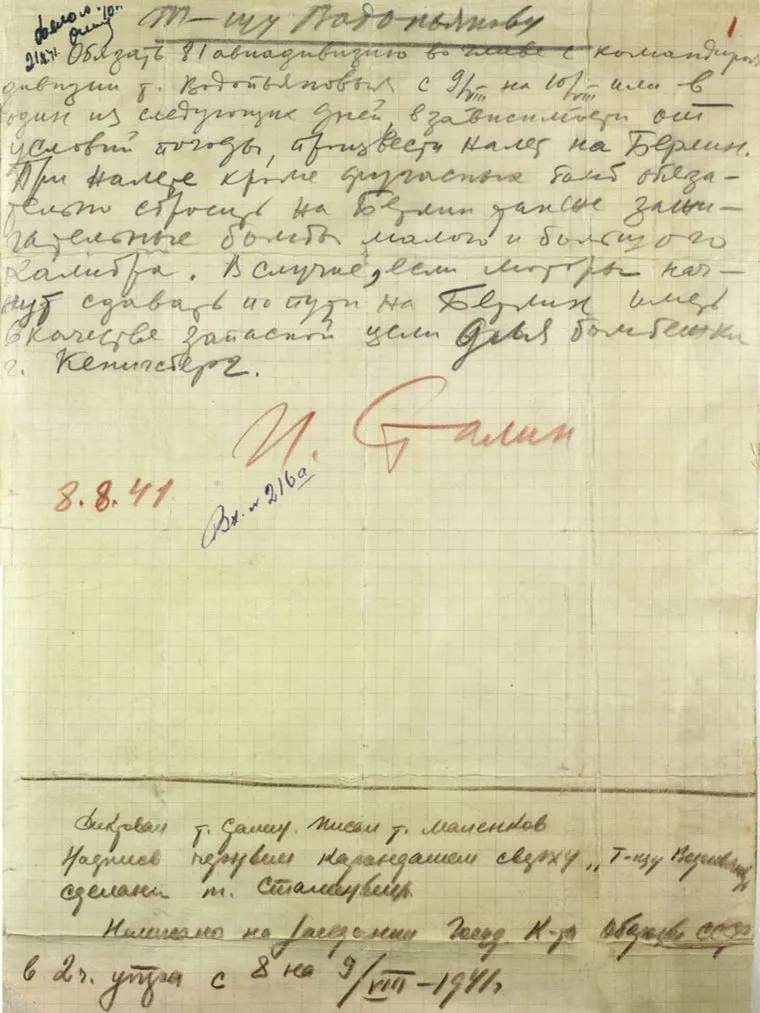 Т-щу Водопьянову
1
Обязать 81 авиадивизию во главе с командиром
дивизии т. Водопьяновым с 9/VIII на 10/VIII или в
один из следующих дней, в зависимости от
условий погоды, произвести налет на Берлин.
При налете кроме фугасных бомб обяза-
тельно сбросить на Берлин также зажи-
гательные бомбы малого и большого
калибра. В случае, если моторы нач-
нут сдавать по пути на Берлин иметь
в качестве запасной цели для бомбежки
г. Кенигсберг.
И. Сталин
8.8.41
Вх. № 216а
Диктовал т. Сталин. Писал т. Маленков
Надпись черным карандашем сверху „Т-щу
сделана т. Сталиным
Написано на заседании Госуд. К-та Обороны СССР
в 2 ч. утра с 8 на 9/VIII – 1941 г.